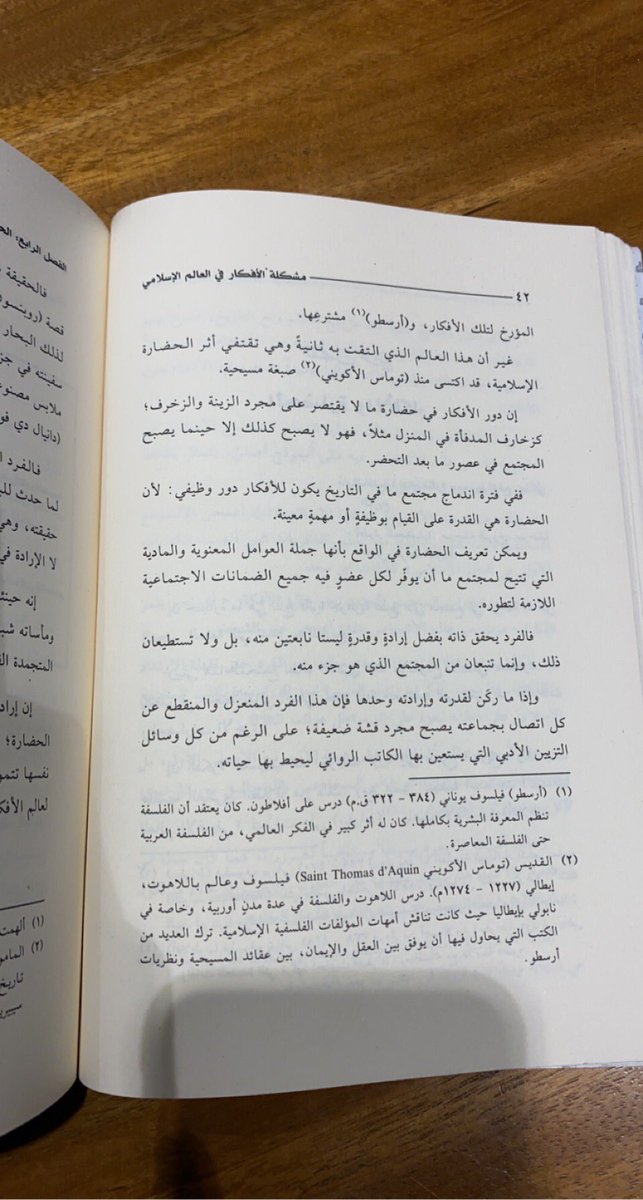 ٤٢ مشكلة الأفكار في العالم الإسلامي
المؤرخ لتلك الأفكار، و(أرسطو)(١) مشترعِها.
غير أن هذا العالم الذي التقت به ثانيةً وهي تقتفي أثر الحضارة
الإسلامية، قد اكتسى منذ (توماس الأكويني)(٢) صبغة مسيحية.
إن دور الأفكار في حضارة ما لا يقتصر على مجرد الزينة والزخرف؛
كزخارف المدفأة في المنزل مثلاً، فهو لا يصبح كذلك إلا حينما يصبح
المجتمع في عصور ما بعد التحضر.
ففي فترة اندماج مجتمع ما في التاريخ يكون للأفكار دور وظيفي: لأن
الحضارة هي القدرة على القيام بوظيفةٍ أو مهمةٍ معينة.
ويمكن تعريف الحضارة في الواقع بأنها جملة العوامل المعنوية والمادية
التي تتيح لمجتمع ما أن يوفّر لكل عضوٍ فيه جميع الضمانات الاجتماعية
اللازمة لتطوره.
فالفرد يحقق ذاته بفضل إرادةٍ وقدرةٍ ليستا نابعتين منه، بل ولا تستطيعان
ذلك، وإنما تنبعان من المجتمع الذي هو جزء منه.
وإذا ما ركَن لقدرته وإرادته وحدها فإن هذا الفرد المنعزل والمنقطع عن
كل اتصال بجماعته يصبح مجرد قشة ضعيفة؛ على الرغم من كل وسائل
التزيين الأدبي التي يستعين بها الكاتب الروائي ليحيط بها حياته.
(١) (أرسطو) فيلسوف يوناني (٣٨٤ - ٣٢٢ ق.م) درس على أفلاطون. كان يعتقد أن الفلسفة
تنظم المعرفة البشرية بكاملها. كان له أثر كبير في الفكر العالمي، من الفلسفة العربية
حتى الفلسفة المعاصرة.
(٢) القديس (توماس الأكويني Saint Thomas d'Aquin) فيلسوف وعالم باللاهوت،
إيطالي (١٢٢٧ - ١٢٧٤م). درس اللاهوت والفلسفة في عدة مدنٍ أوربية، وخاصة في
نابولي بإيطاليا حيث كانت تناقش أمهات المؤلفات الفلسفية الإسلامية. ترك العديد من
الكتب التي يحاول فيها أن يوفق بين العقل والإيمان، بين عقائد المسيحية ونظريات
أرسطو.
الفصل الرابع:
فالحقيقة
قصة
لذلك البحار
سفينته في
ملابس
(دانيال دي
فالفرد
لما حدث
حقيقته، وهي
لا الإرادة في
إنه
ومأساته
المتجمدة
إن
الحضارة؛
نفسها
لعالم
(١) ألهمت
(٢)
تاريخ